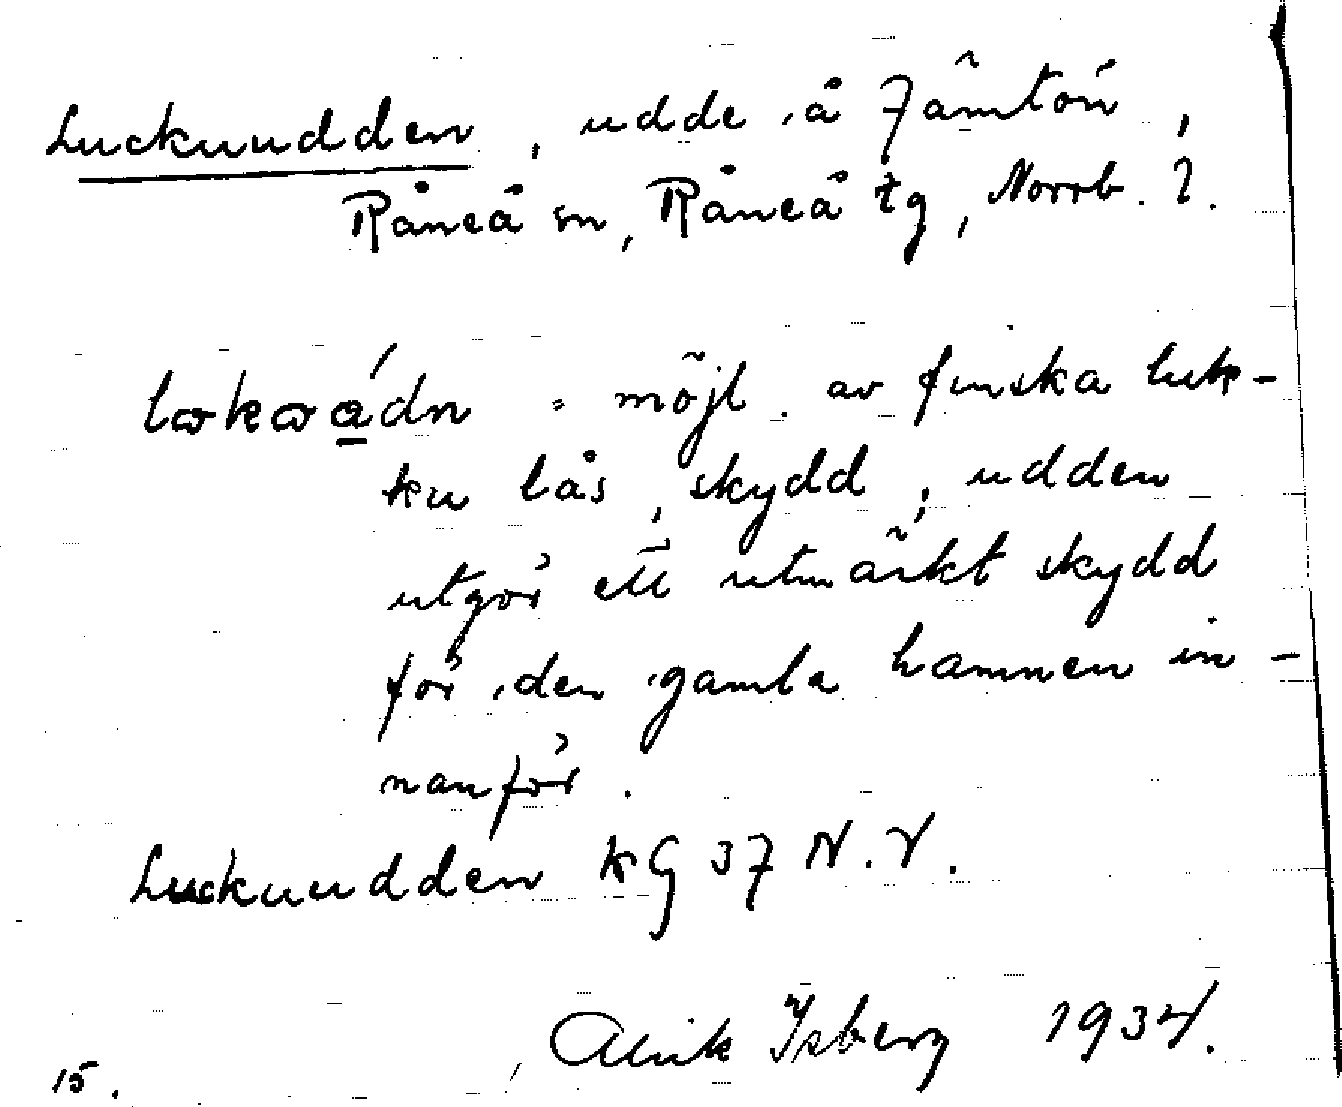 Luckuudden, udde å Jämtön,
Råneå sn, Råneå tg, Norrb. l.
möjl. av finska luk-
ku lås, skydd, udden
utgör ett utmärkt skydd
för den gamla hamnen in-
nanför.
Luckuudden KG 37 N.V.
Alrik Isberg 1934.
15.